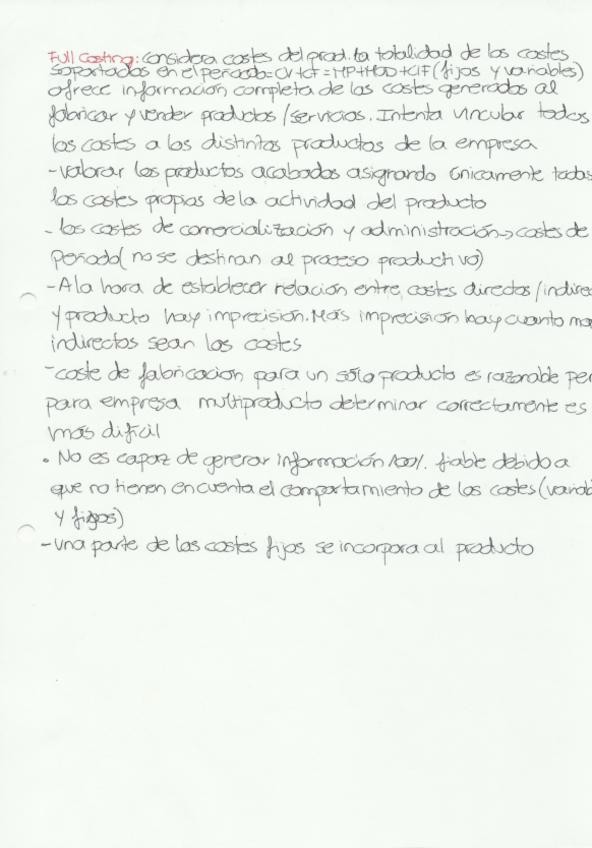 Full Costing: considera costes del prod. la totalidad de los costes
soportados en el periodo = CV+CF = MP+MOD+CIF (fijos y variables)
ofrece información completa de los costes generados al
fabricar y vender productos/servicios. Intenta vincular todos
los costes a los distintos productos de la empresa
-valorar los productos acabados asignando únicamente todos
los costes propios de la actividad del producto
- los costes de comercialización y administración→costes de
periodo (no se destinan al proceso productivo)
-A la hora de establecer relación entre costes directos/indirec
y producto hay imprecisión. Más imprecisión hay cuanto más
indirectos sean los costes
-coste de fabricacion para un sólo producto es razonable per
para empresa multiproducto determinar correctamente es
más difícil
• No es capaz de generar información 100% fiable debido a
que no tienen en cuenta el comportamiento de los costes (variab
y fijos)
-una parte de los costes fijos se incorpora al producto